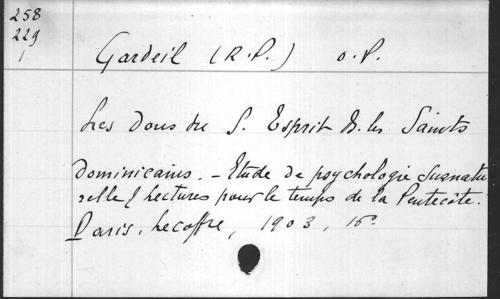 258
229
1
Gardeil (R.P.) o.P.
Les Dons du S. Esprit ds. les Saints
Dominicains. - Etude de psychologie surnatu
relle & lectures pour le temps de la Pentecôte.
Paris, Lecoffre, 1903, 16°